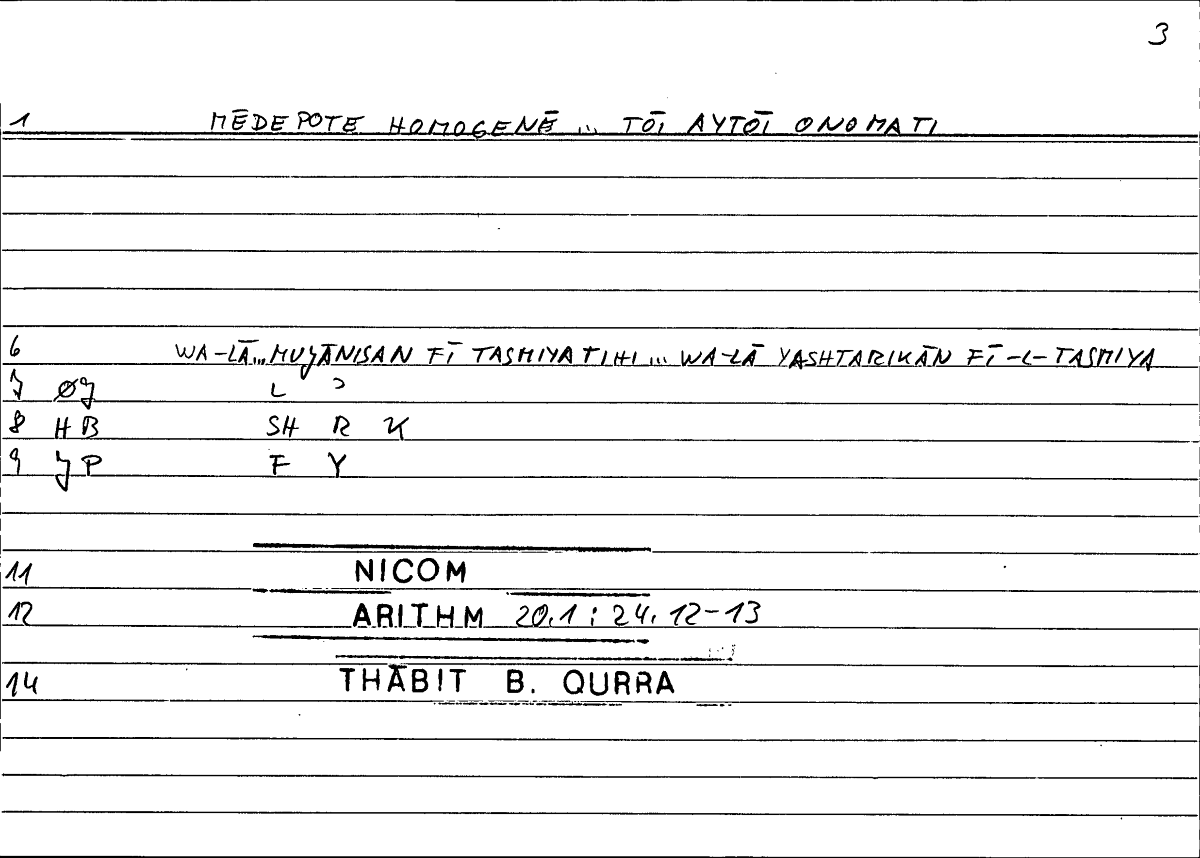 3
1 MĒDEPOTE HOMOGENĒ ... TŌI AYTŌI ONOMATI
6 WA-LĀ...MUJĀNISAN FĪ TASMIYATIHI... WA-LĀ YASHTARIKĀN FĪ-L-TASMIYA
7 ØJ L ʾ
8 HB SH R K
9 JP F Y
11 NICOM
12 ARITHM 20.1 : 24. 12-13
14 THĀBIT B. QURRA